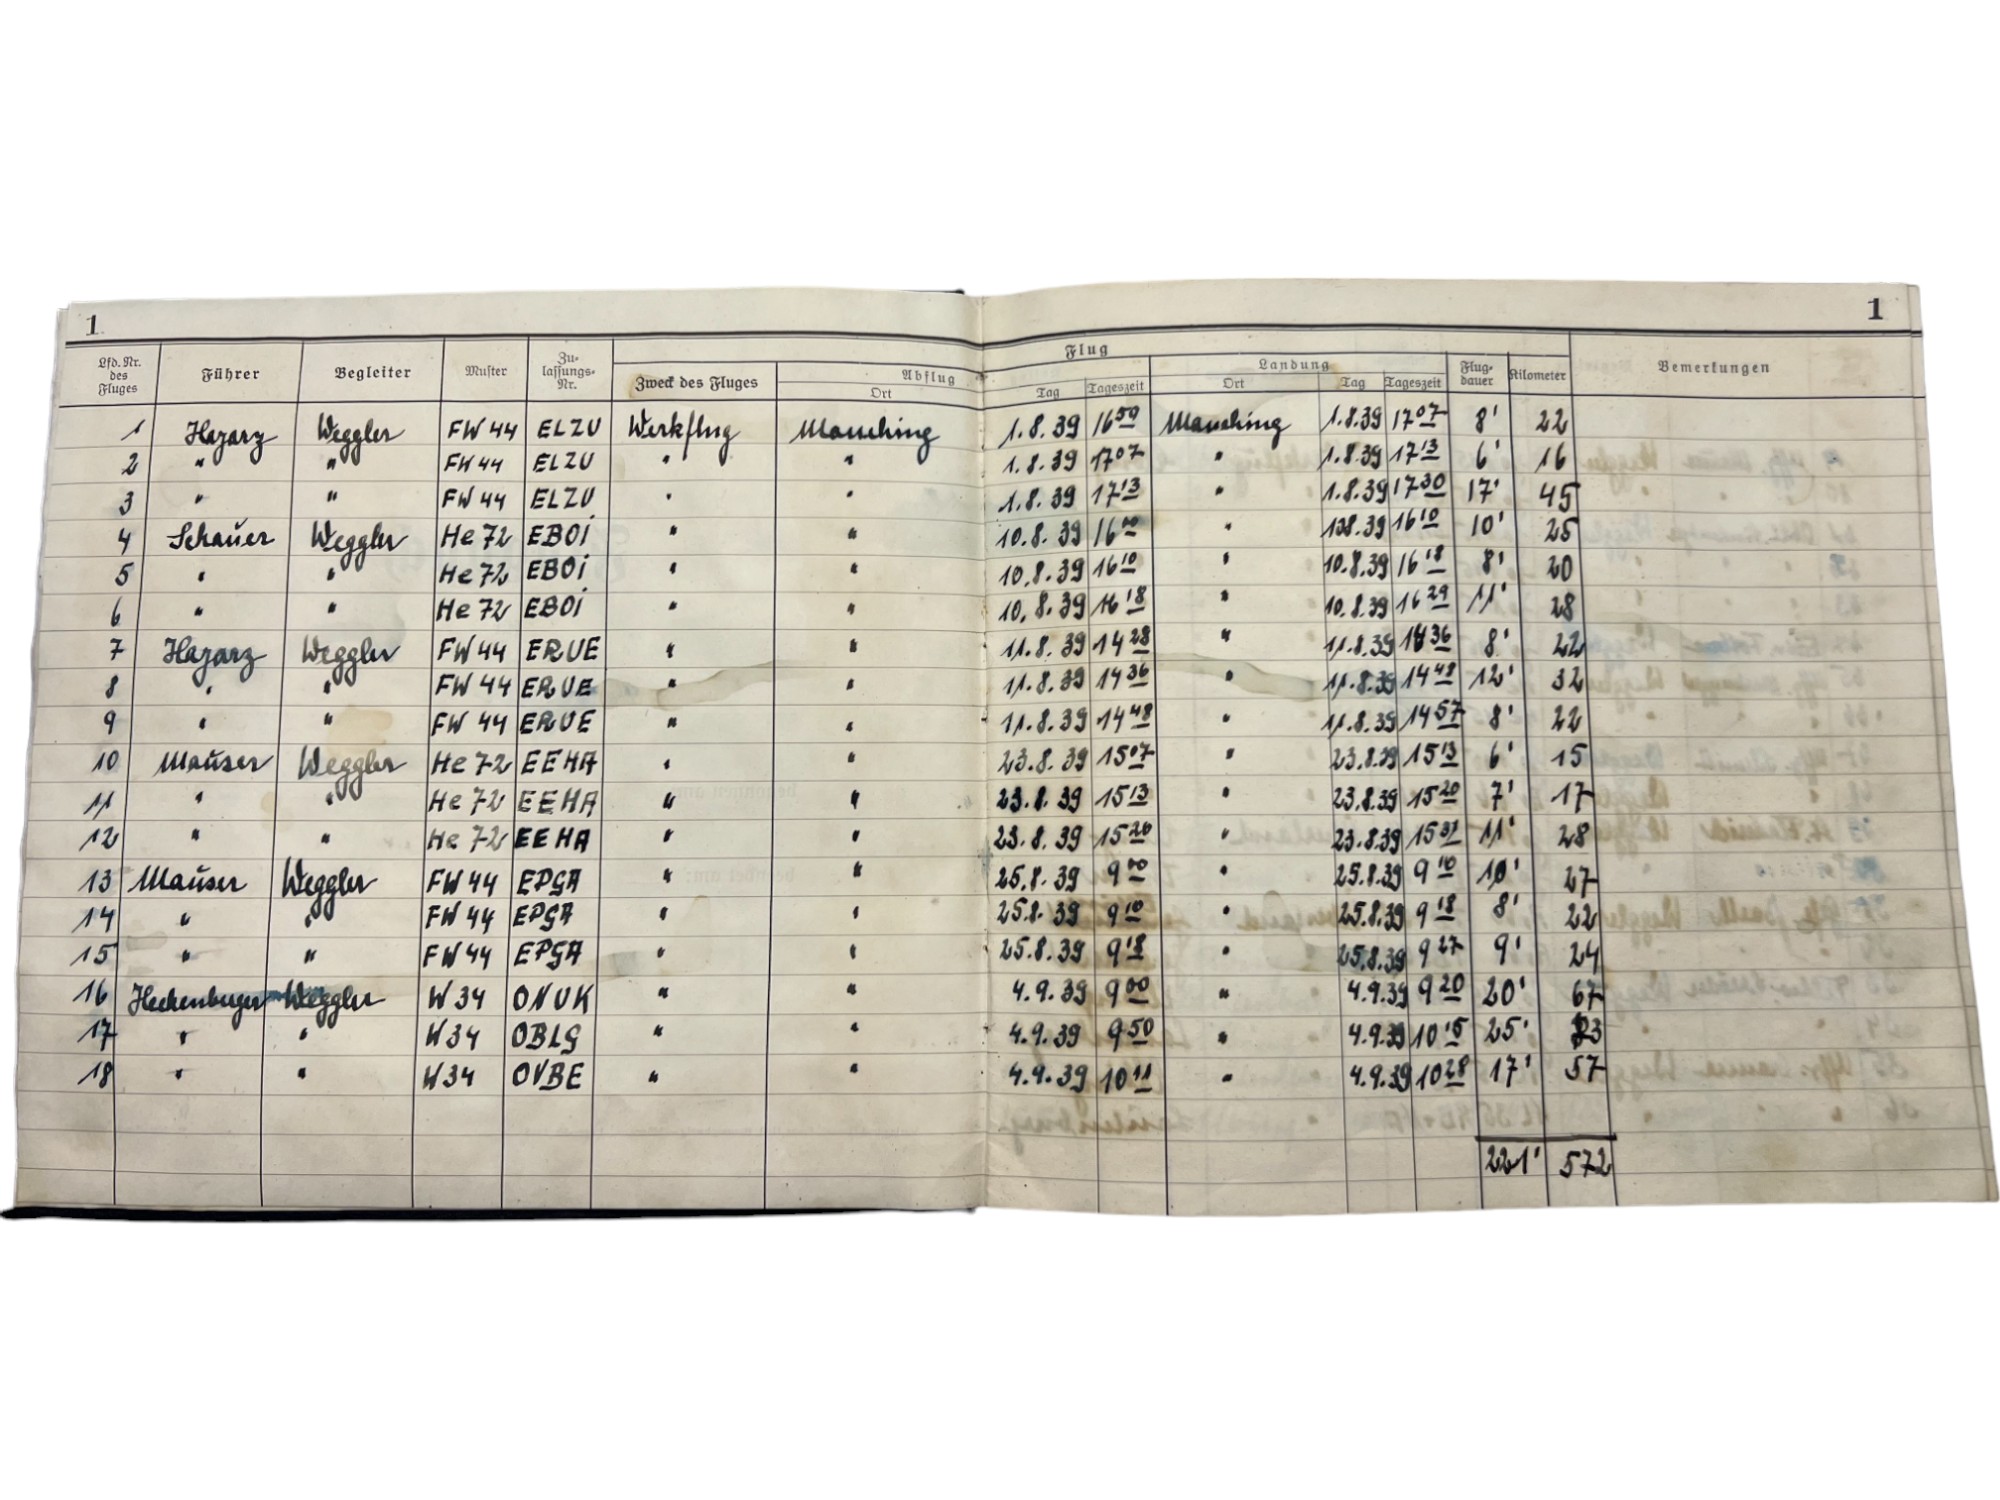 1. 1
Lfd. Nr. des Fluges Führer Begleiter Muster Zulassungs-Nr. Flug Bemerkungen
Zweck des Fluges Abflug Landung Flugdauer Kilometer
Ort Tag Tageszeit Ort Tag Tageszeit
1 Hazarz Weggler FW 44 ELZU Werkflug Manching 1.8.39 16 59 Manching 1.8.39 17 07 8' 22
2 " " FW 44 ELZU " " 1.8.39 17 07 " 1.8.39 17 13 6' 16
3 " " FW 44 ELZU " " 1.8.39 17 13 " 1.8.39 17 30 17' 45
4 Schauer Weggler He 72 EBOi " " 10.8.39 16 00 " 10.8.39 16 10 10' 25
5 " " He 72 EBOi " " 10.8.39 16 10 " 10.8.39 16 18 8' 20
6 " " He 72 EBOi " " 10.8.39 16 18 " 10.8.39 16 29 11' 28
7 Hazarz Weggler FW 44 ERUE " " 11.8.39 14 28 " 11.8.39 14 36 8' 22
8 " " FW 44 ERUE " " 11.8.39 14 36 " 11.8.39 14 48 12' 32
9 " " FW 44 ERUE " " 11.8.39 14 48 " 11.8.39 14 57 8' 22
10 Mauser Weggler He 72 EEHA " " 23.8.39 15 07 " 23.8.39 15 13 6' 15
11 " " He 72 EEHA " " 23.8.39 15 13 " 23.8.39 15 20 7' 17
12 " " He 72 EEHA " " 23.8.39 15 20 " 23.8.39 15 31 11' 28
13 Mauser Weggler FW 44 EPGA " " 25.8.39 9 00 " 25.8.39 9 10 10' 27
14 " " FW 44 EPGA " " 25.8.39 9 10 " 25.8.39 9 18 8' 22
15 " " FW 44 EPGA " " 25.8.39 9 18 " 25.8.39 9 27 9' 24
16 Heckenberger Weggler W 34 ONUK " " 4.9.39 9 00 " 4.9.39 9 20 20' 67
17 " " W 34 OBLG " " 4.9.39 9 50 " 4.9.39 10 15 25' 83
18 " " W 34 OVBE " " 4.9.39 10 11 " 4.9.39 10 28 17' 57
221' 572